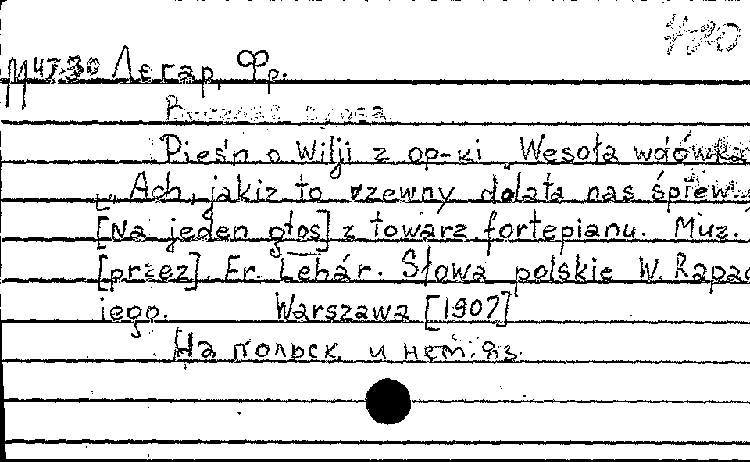 420
М 47330 Легар, Фр.
Веселая вдова
Pieśn o Wilji z op-ki "Wesoła wdówka
["Ach, jakiz to rzewny dolata nas śpiew
[Na jeden głos] z towarz fortepianu. Muz.
[przez] Fr. Lehár. Słowa polskie W. Rapac
iego. Warszawa [1907]
На польск. и нем. яз.